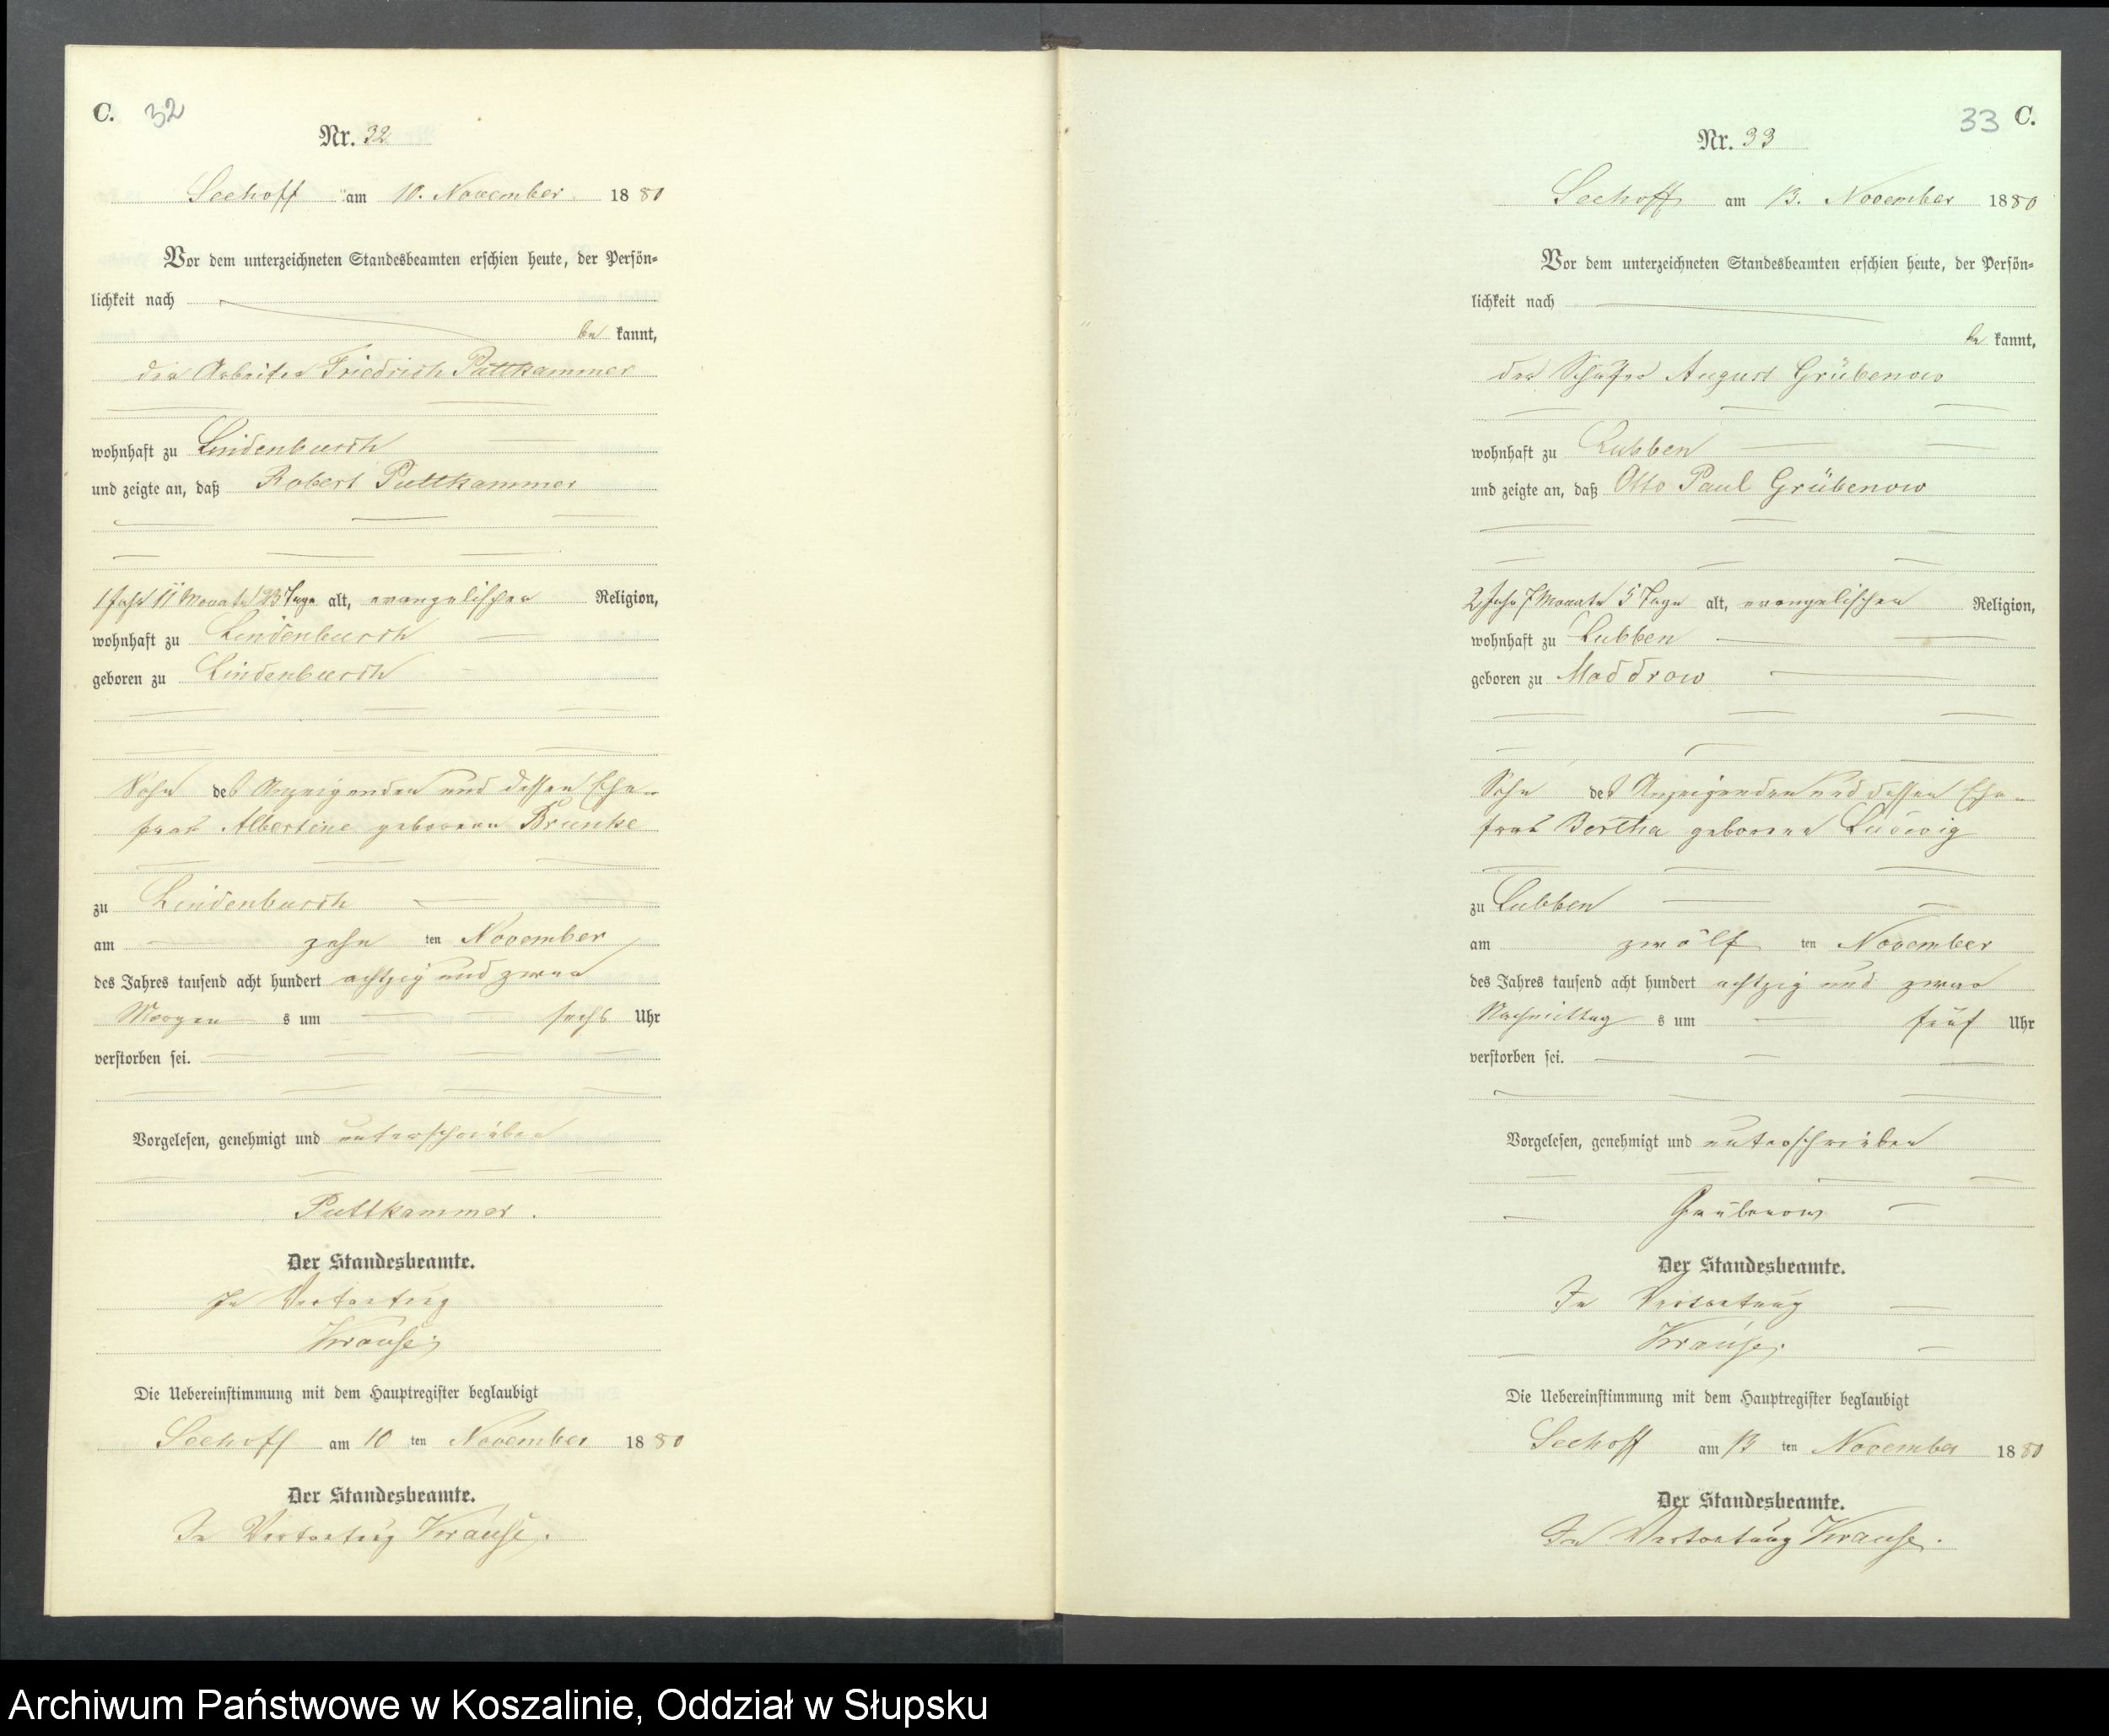 C. 32
Nr. 32
Seehoff am 10. November 1880
Vor dem unterzeichneten Standesbeamten erschien heute, der Persön-
lichkeit nach
be kannt,
der Arbeiter Friedrich Puttkammer
wohnhaft zu Lindenbusch
und zeigte an, daß Robert Puttkammer
1 Jahr 11 Monate 23 Tage alt, evangelischer Religion,
wohnhaft zu Lindenbusch
geboren zu Lindenbusch
Sohn des Anzeigenden und dessen Ehe-
frau Albertine geborene Brunke
zu Lindenbusch
am zehn ten November
des Jahres tausend acht hundert achtzig und zwar
Morgen s um sechs Uhr
verstorben sei.
Vorgelesen, genehmigt und unterschrieben
Puttkammer.
Der Standesbeamte.
In Vertretung
Krause.
Die Uebereinstimmung mit dem Hauptregister beglaubigt
Seehoff am 10 ten November 1880
Der Standesbeamte.
In Vertretung Krause.
33 C.
Nr. 33
Seehoff am 13. November 1880
Vor dem unterzeichneten Standesbeamten erschien heute, der Persön-
lichkeit nach
be kannt,
der Schäfer August Grübenow
wohnhaft zu Lubben
und zeigte an, daß Otto Paul Grübenow
2 Jahr 7 Monate 5 Tage alt, evangelischen Religion,
wohnhaft zu Lubben
geboren zu Maddrow
Sohn des Anzeigenden und dessen Ehe-
frau Bertha geborene Ludwig
zu Lubben
am zwölf ten November
des Jahres tausend acht hundert achtzig und zwar
Nachmittag s um fünf Uhr
verstorben sei.
Vorgelesen, genehmigt und unterschrieben
Grübenow
Der Standesbeamte.
In Vertretung
Krause.
Die Uebereinstimmung mit dem Hauptregister beglaubigt
Seehoff am 13 ten November 1880
Der Standesbeamte.
In Vertretung Krause.
Archiwum Państwowe w Koszalinie, Oddział w Słupsku